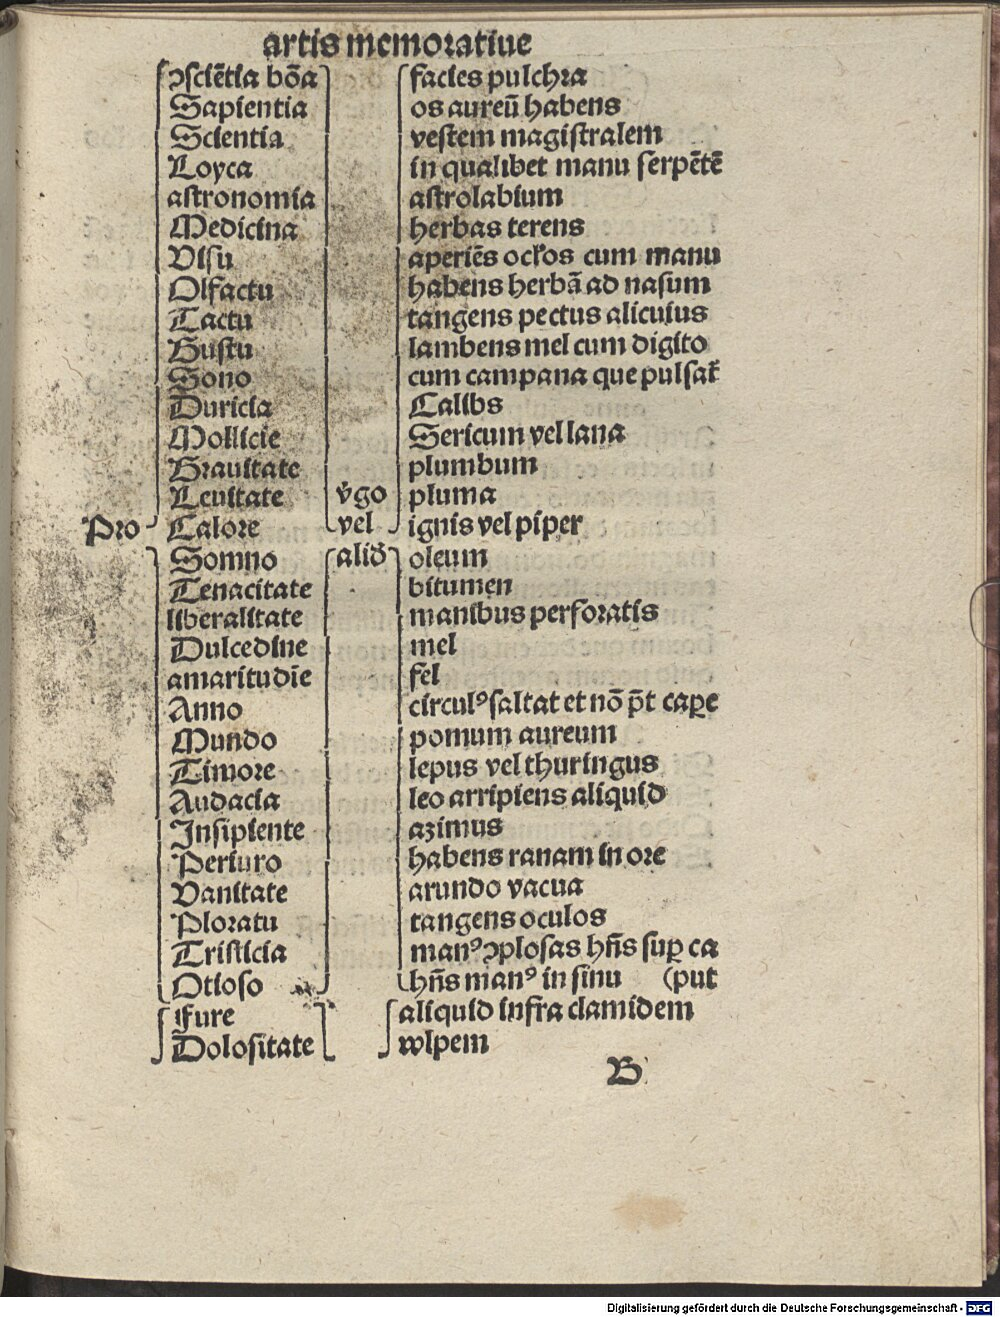 artis memoratiue
ↄsciētia bōa facies pulchra
Sapientia os aureū habens
Scientia vestem magistralem
Loyca in qualibet manu serpētē
astronomia astrolabium
Medicina herbas terens
Visu aperiēs ocl'os cum manu
Olfactu habens herbā ad nasum
Tactu tangens pectus alicuius
Gustu lambens mel cum digito
Sono cum campana que pulsat
Duricia Calibs
Mollicie Sericum vel lana
Grauitate plumbum
Leuitate v̄go pluma
Pro Calore vel ignis vel piper
Somno alid' oleum
Tenacitate bitumen
liberalitate manibus perforatis
Dulcedine mel
amaritudīe fel
Anno circulꝰ saltat et nō p̄t caꝑe
Mundo pomum aureum
Timore lepus vel thuringus
Audacia leo arripiens aliquid
Insipiente azimus
Periuro habens ranam in ore
Vanitate arundo vacua
Ploratu tangens oculos
Tristicia manꝰ ↄplosas hn̄s suꝑ ca
Otioso hn̄s manꝰ in sinu (put
Fure aliquid infra clamidem
Dolositate wlpem
B
Digitalisierung gefördert durch die Deutsche Forschungsgemeinschaft - DFG